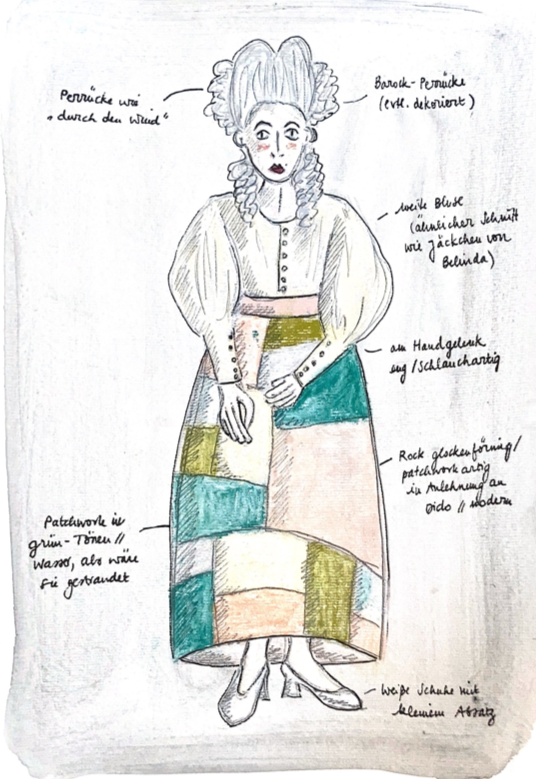 Perrücke wie
"durch den Wind"
Barock-Perrücke
(evtl. dekoriert)
weiße Bluse
(ähnlicher Schnitt
wie Jäckchen von
Belinda)
am Handgelenk
eng/schlauchartig
Rock glockenförmig/
patchworkartig
in Anlehnung an
Dido // modern
Patchwork in
grün-Tönen //
Wasser, als wäre
sie gestrandet
weiße Schuhe mit
kleinem Absatz